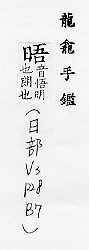 龍龕手鑑
晤音悟明
也朗也
(日部
V3
P28
B7)